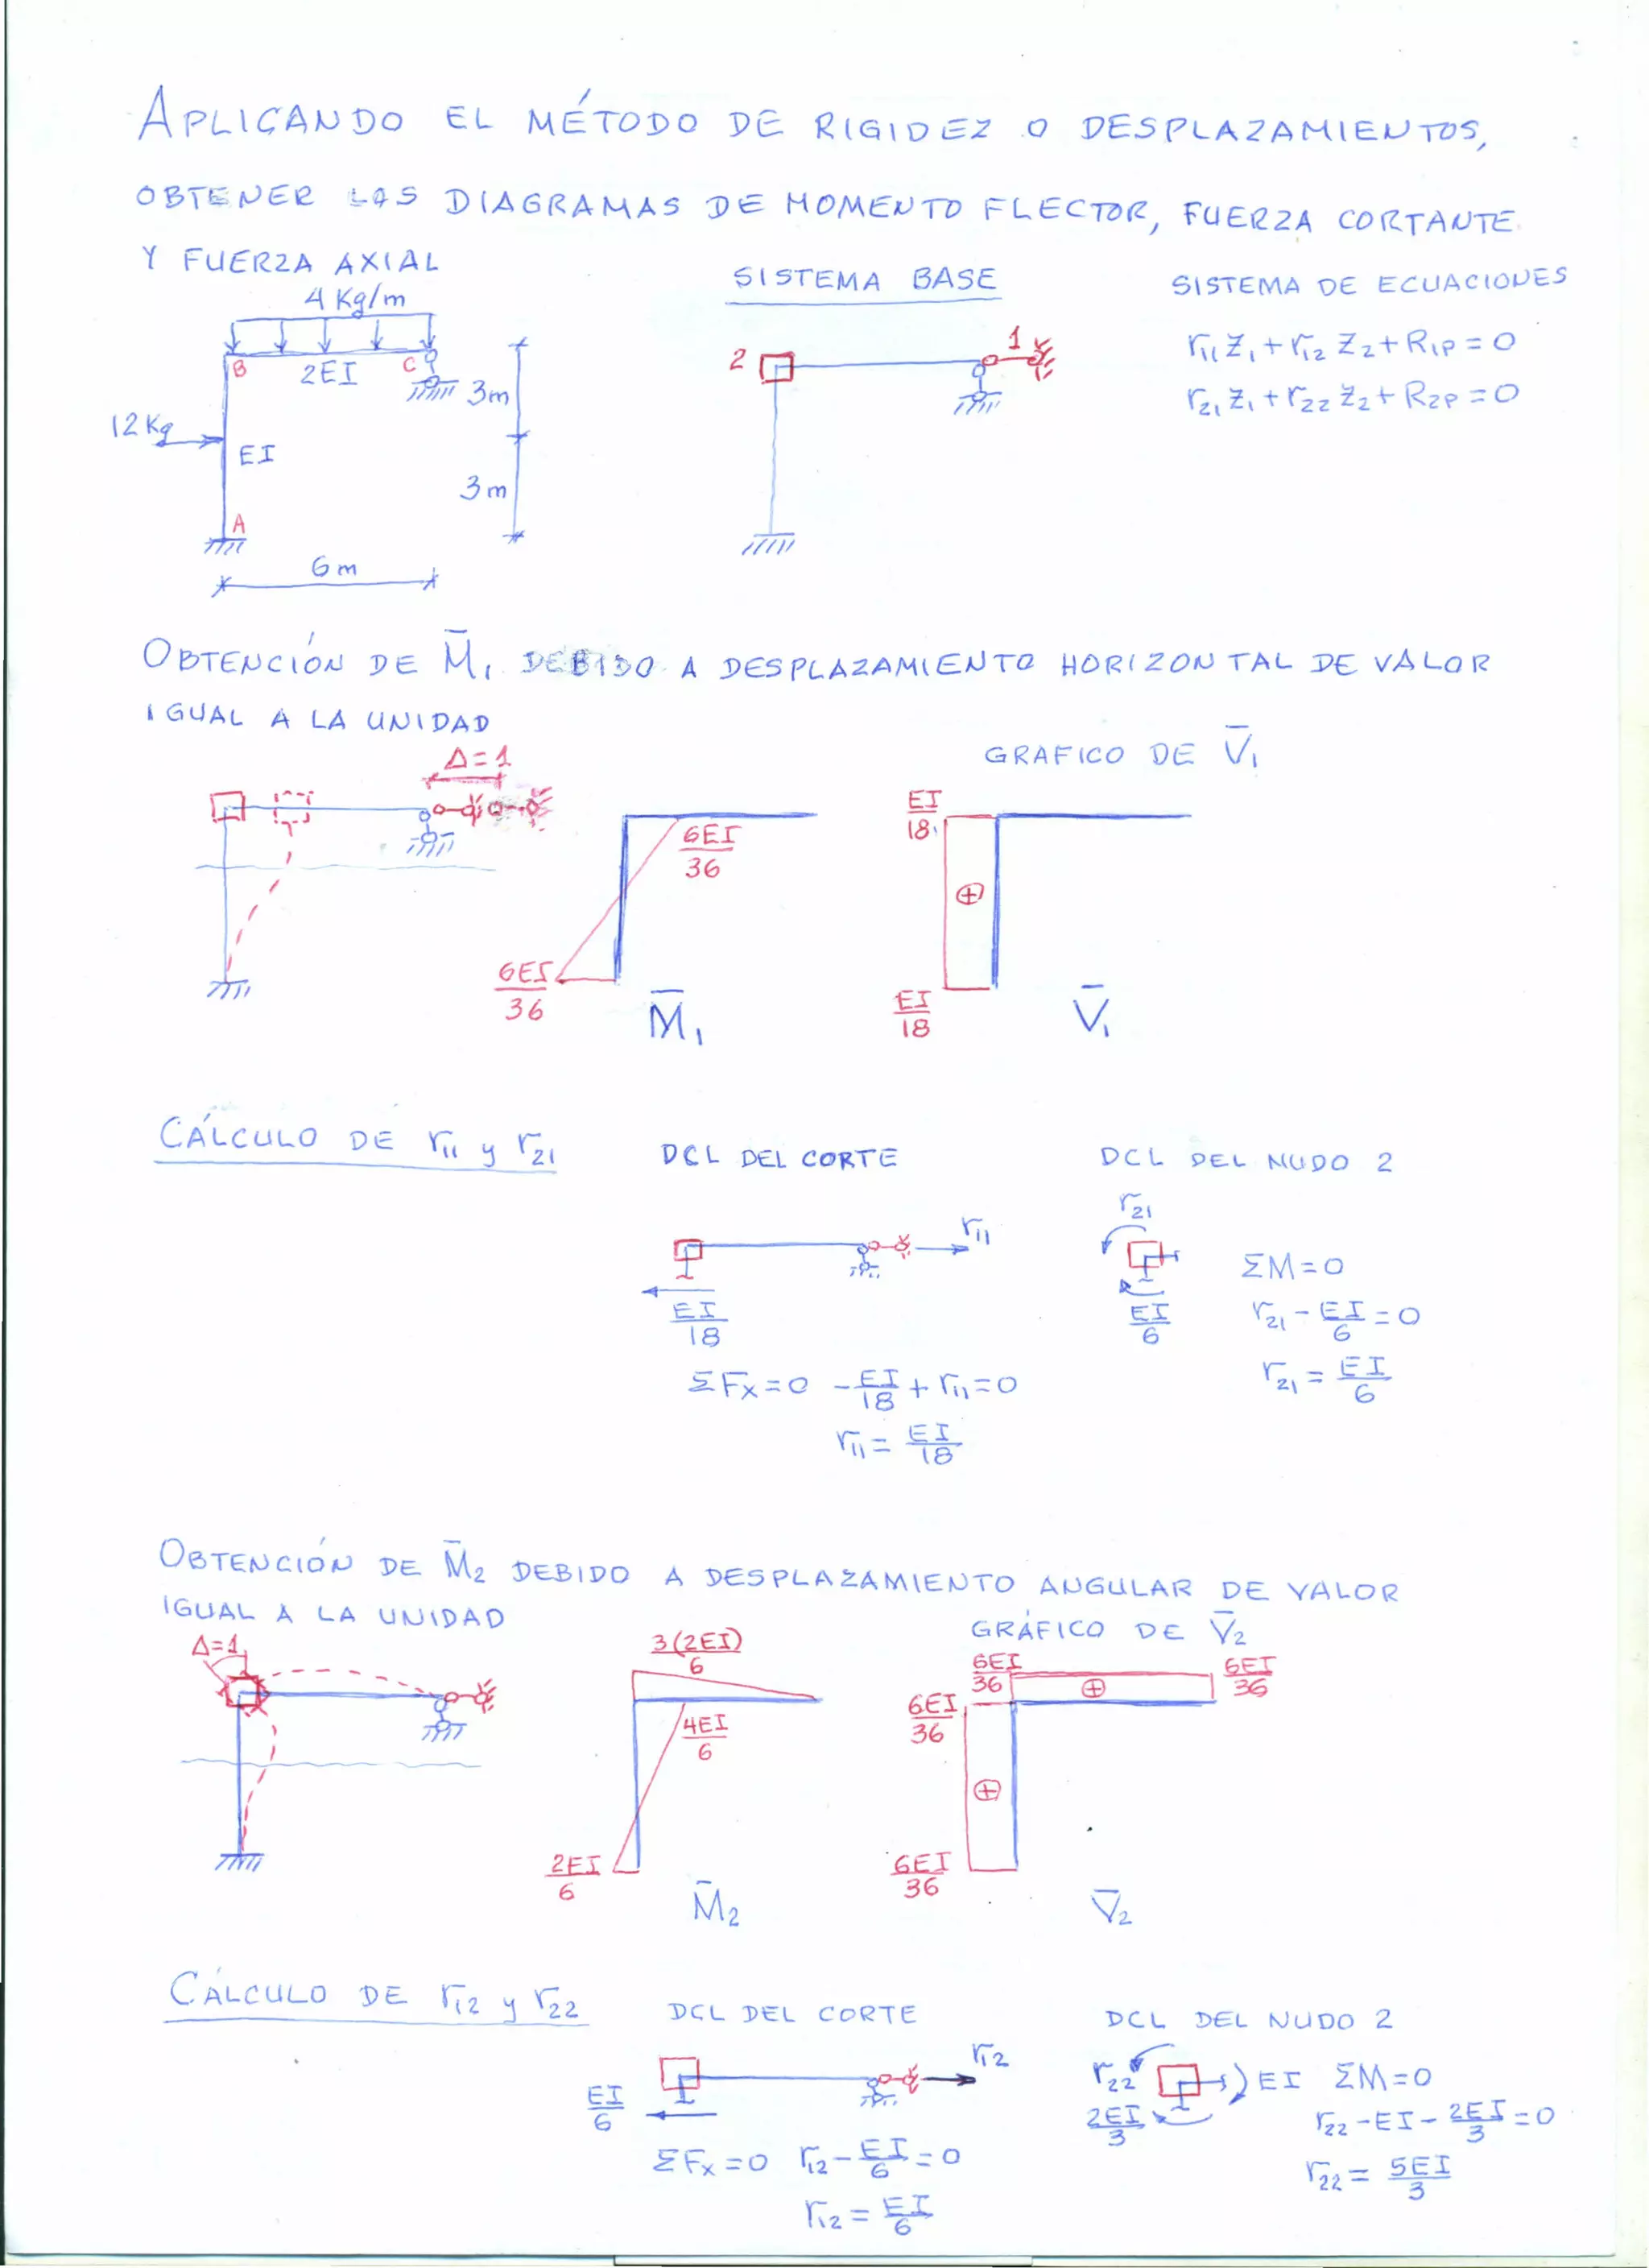 APLICANDO EL MÉTODO DE RIGIDEZ O DESPLAZAMIENTOS,
OBTENER LOS DIAGRAMAS DE MOMENTO FLECTOR, FUERZA CORTANTE
Y FUERZA AXIAL
4 Kg/m
B
2EI
C
3m
12 Kg
EI
3m
A
6m
SISTEMA BASE
2
1
SISTEMA DE ECUACIONES
r11 Z1 + r12 Z2 + R1P = 0
r21 Z1 + r22 Z2 + R2P = 0
OBTENCIÓN DE M̅1 DEBIDO A DESPLAZAMIENTO HORIZONTAL DE VALOR
IGUAL A LA UNIDAD
Δ=1
6EI/36
6EI/36
M̅1
GRAFICO DE V̅1
EI/18
⊕
EI/18
V̅1
CÁLCULO DE r11 y r21
DCL DEL CORTE
r11
EI/18
ΣFx=0 -EI/18 + r11=0
r11 = EI/18
DCL DEL NUDO 2
r21
EI/6
ΣM=0
r21 - EI/6 = 0
r21 = EI/6
OBTENCIÓN DE M̅2 DEBIDO A DESPLAZAMIENTO ANGULAR DE VALOR
IGUAL A LA UNIDAD
Δ=1
3(2EI)/6
4EI/6
2EI/6
M̅2
GRÁFICO DE V̅2
6EI/36
6EI/36
⊕
6EI/36
⊕
6EI/36
V̅2
CÁLCULO DE r12 y r22
DCL DEL CORTE
r12
EI/6
ΣFx=0 r12 - EI/6 = 0
r12 = EI/6
DCL DEL NUDO 2
r22
EI
2EI/3
ΣM=0
r22 - EI - 2EI/3 = 0
r22 = 5EI/3